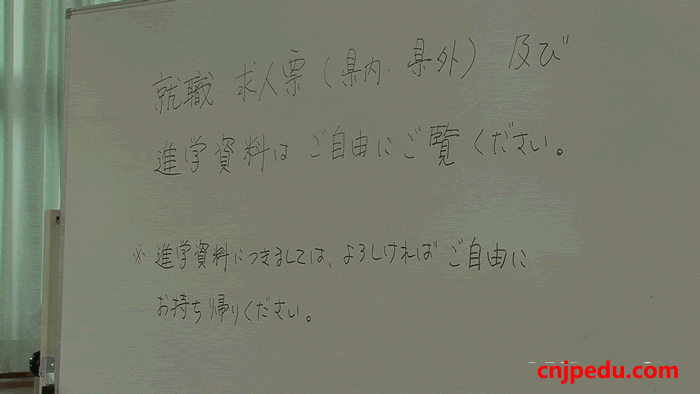 就職・求人票（県内・県外）及び
進学資料はご自由にご覧ください。
※進学資料につきましては、よろしければご自由に
お持ち帰りください。
cnjpedu.com